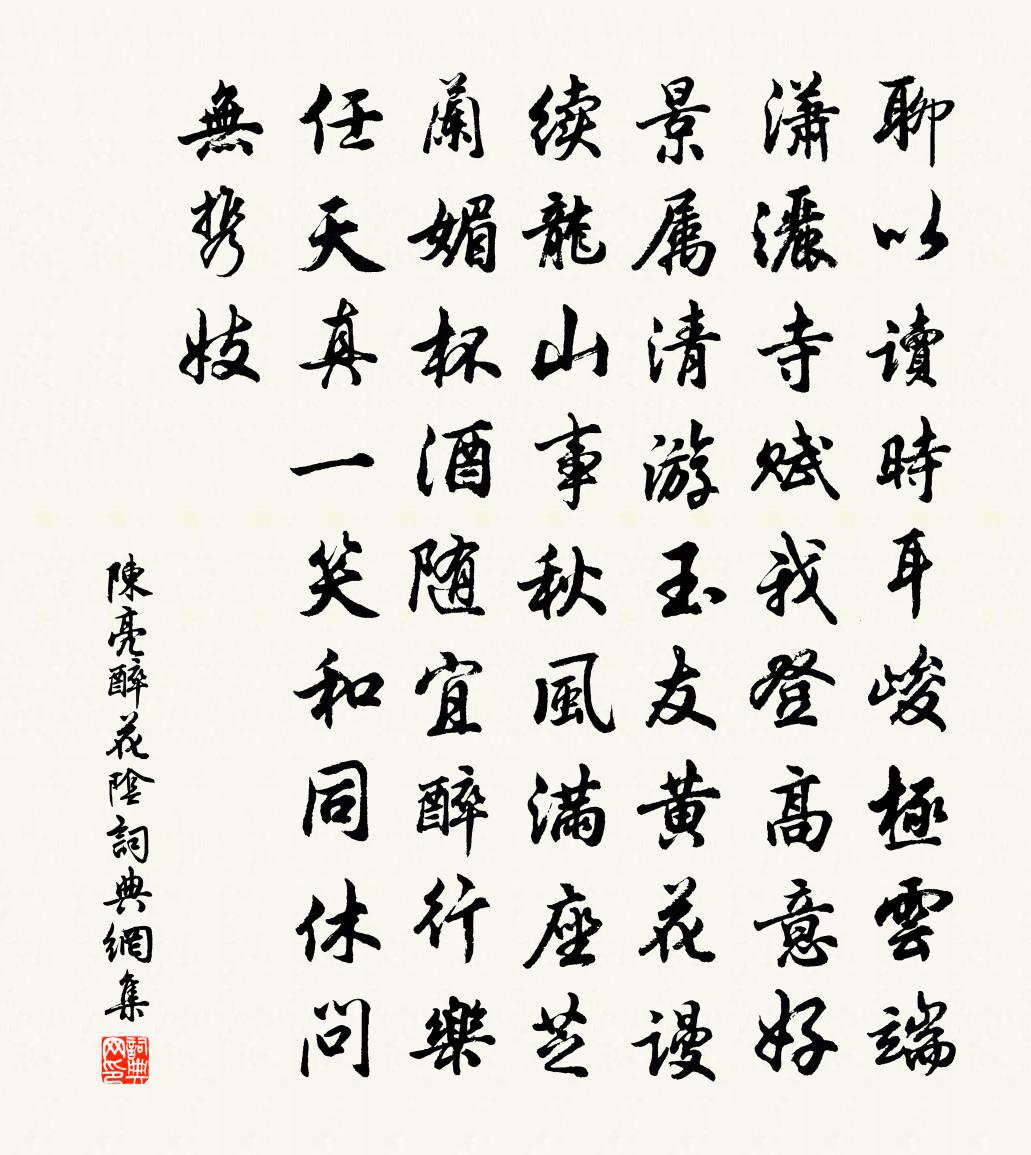 聊以讀時耳峻極雲端
瀟灑寺賦我登高意好
景属清游玉友黄花謾
续龍山事秋風满座芝
蘭媚杯酒随宜醉行樂
任天真一笑和同休问
無携妓
陳亮醉花陰詞典網集
詞典网印